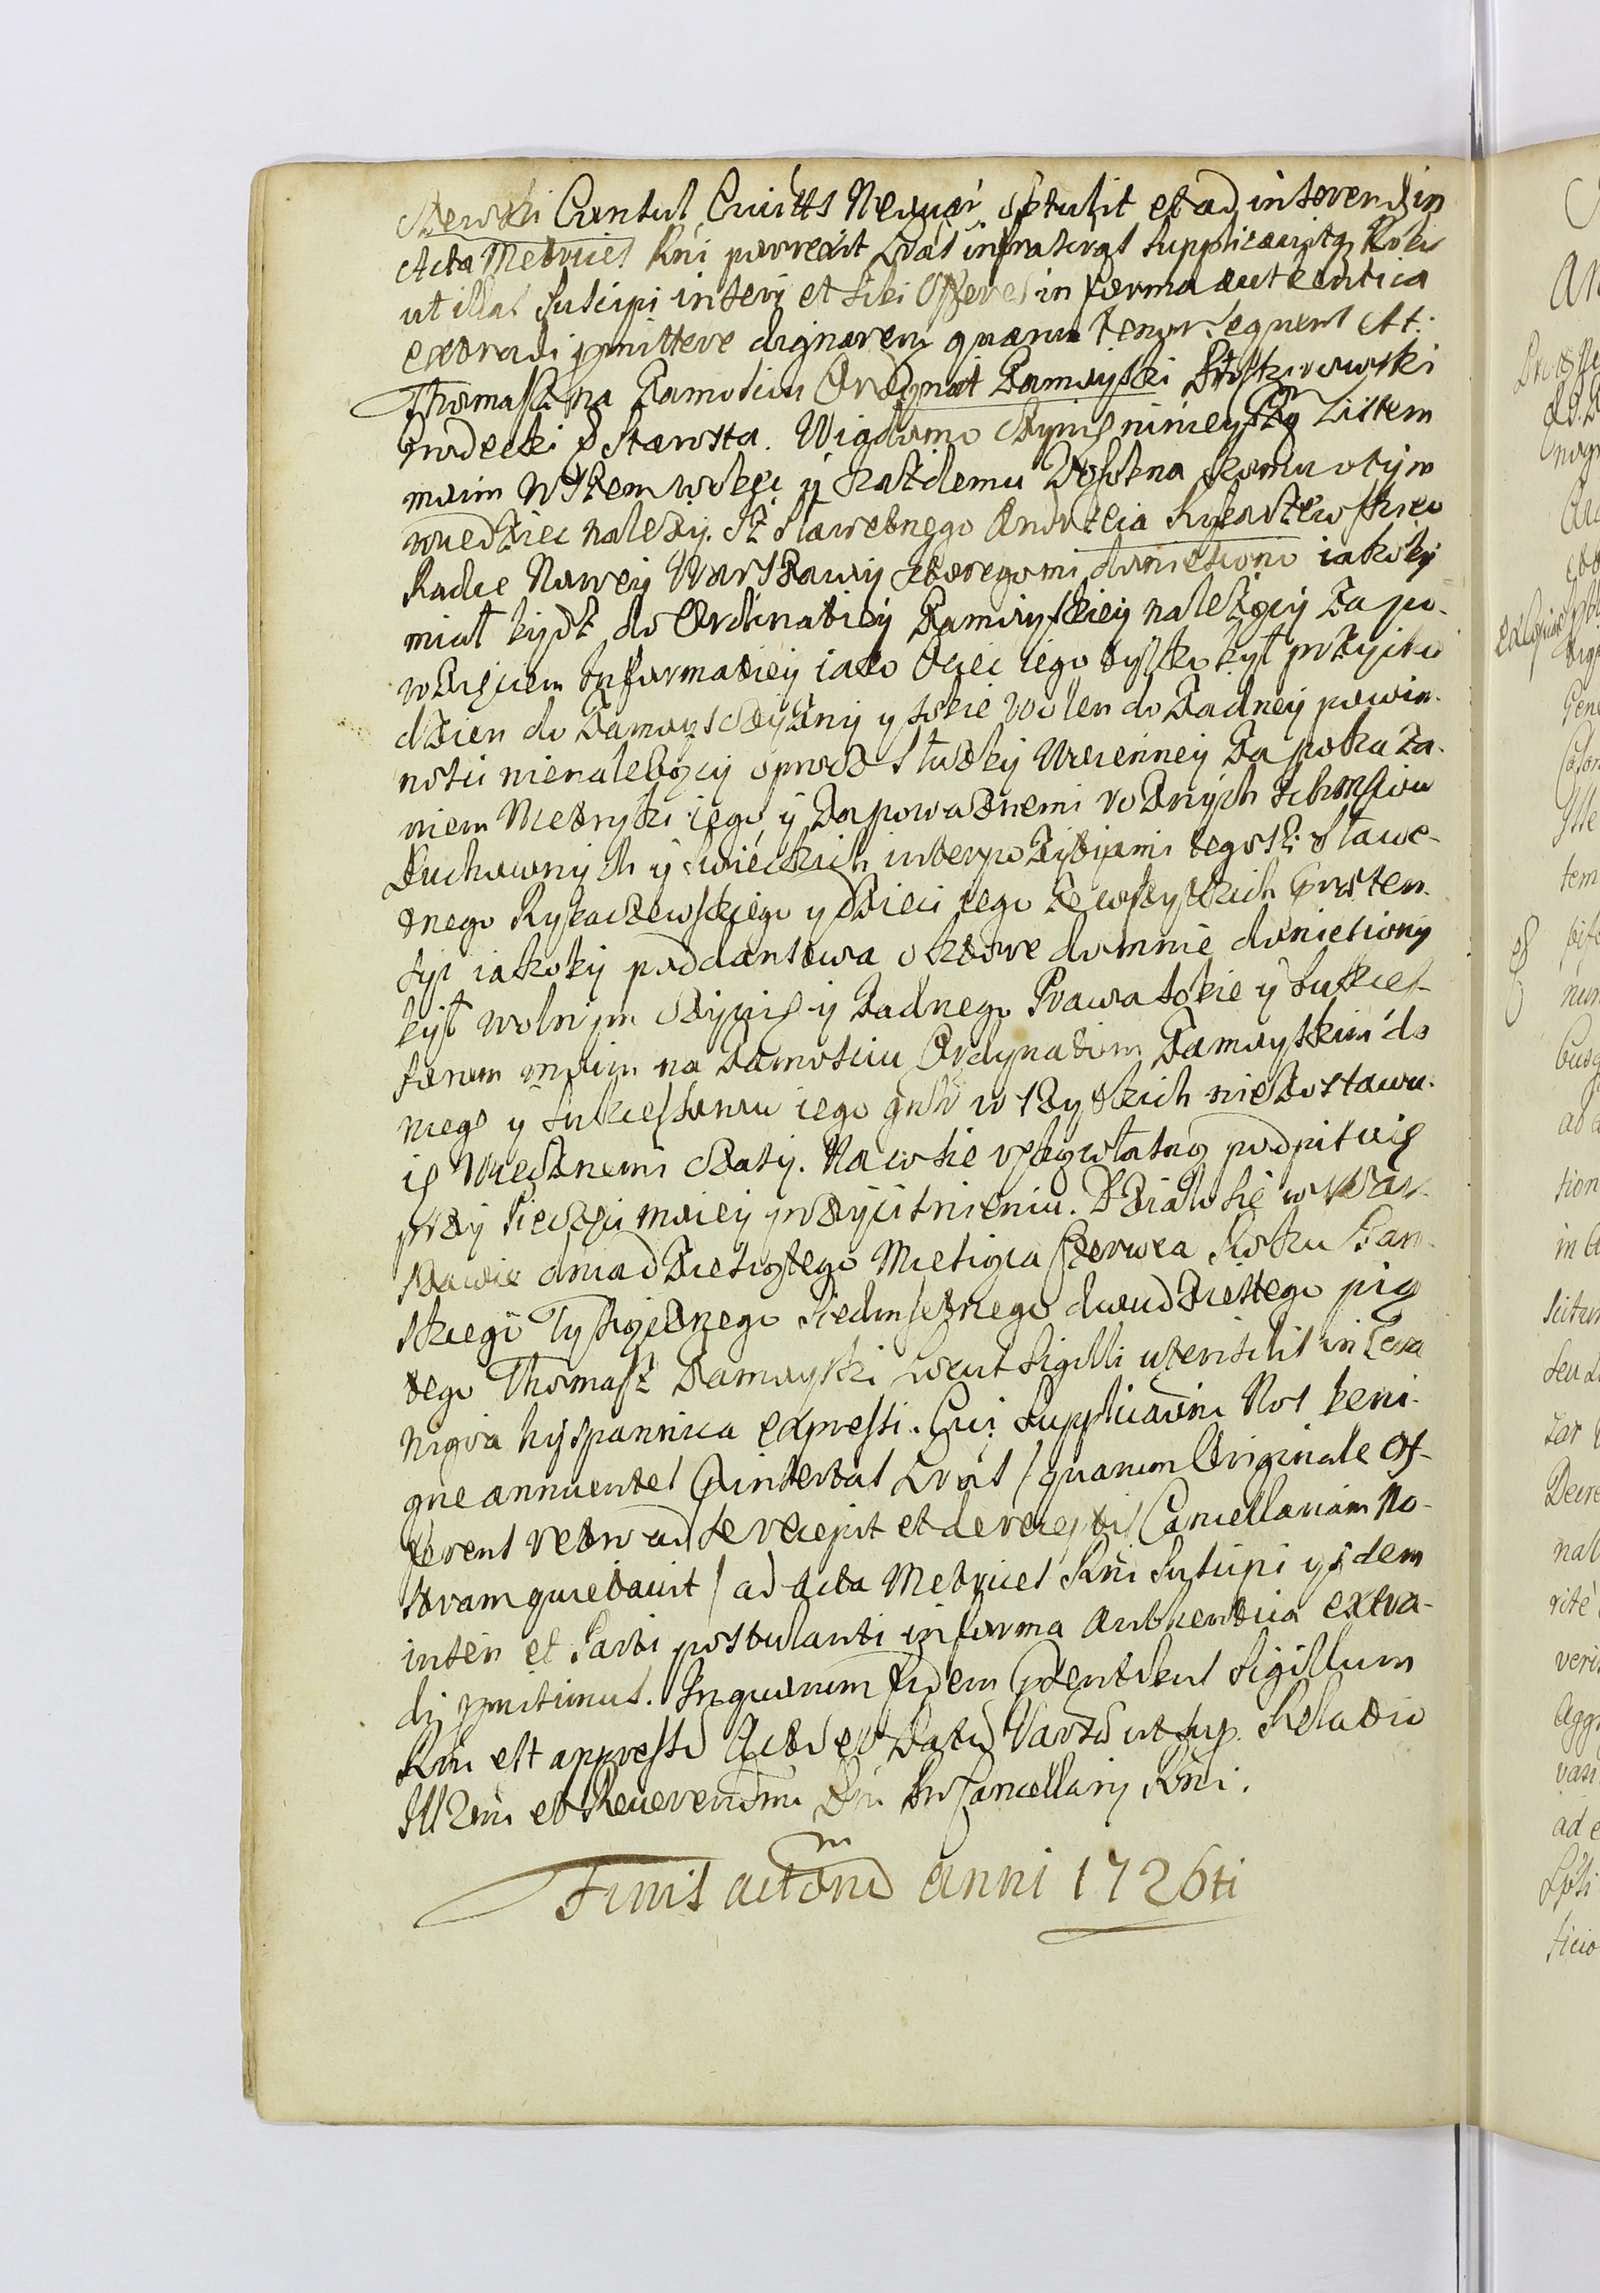 czewski Consul Civittis Neovar. obtulit et ad inserend in
Acta Metrices Rni porrexit Lras infrascrips supplicavitq Nobis
ut illas suscipi inseri et sibi Offerens in forma autentica
extradi pmittere dignaremur quarum Tenor sequens est:
Thomasz na Zamościu Ordynat Zamoyski
Grodecki Starosta. Wiadomo czynię ninieyszym Listem
moim Wszem wobec y każdemu zosobna komu o tym
wiedziec nalezy. Iż sławetnego Andrzeia Rykaczewskiego
Radce Nowey Warszawy ktorego mi doniesiono iakoby
miał bydz do Ordinatiey Zamoyskiey należący za po-
wzięciem Informatiey iako Ociec iego tylko był przychodz
dzien do Zamoysczyzny y sobie wolen do Zadney powin-
nosci nienależący oprocz służby Urocznney za pokaza-
niem Metryki iego y za powaznemi roznych
Duchownych y swieckich interpozitiami tegosz sławe-
tnego Rykaczewskiego y dzieci iego ze wszystkich preten-
syi iakoby poddanstwa o ktore do mnie doniesiony
był wolnym czynię y zadnego Prawa sobie y sukces-
sorom moim na Zamosciu Ordynatom Zamoyskim do
niego y sukcessorow iego wszystkich niezostawu-
ię wiecznemi czasy. Na co się ręką własną podpisuię
przy Pieczęci moiey przycisnieniu. Działo się w War-
szawie dnia dziesiątego Miesiąca Czerwca Roku Pan-
skiego Tysiącznego siedmsetnego dwudziestego pią
tego Thomasz Zamoyski Locus Sigilli in Cera
nigra hyspannica expressi. Cui supplicationi Nos beni-
gne annuentes pinsertas Lras / quarum Originale Of-
ferens retro ad se recepit et de receptis Cancellariam No-
stram quietavit / ad Acta Metrices Rni suscipi
inseri et Parti postulanti in forma authentica extra-
di pmisimus. In quorum fidem pntibus Sigillum
Rni est appressu Actu et Datu Varsa ut sup. Relatio
Illmi et Reverendmi Dni Cancellarij Rni.
Finis actoru anni 1726ti